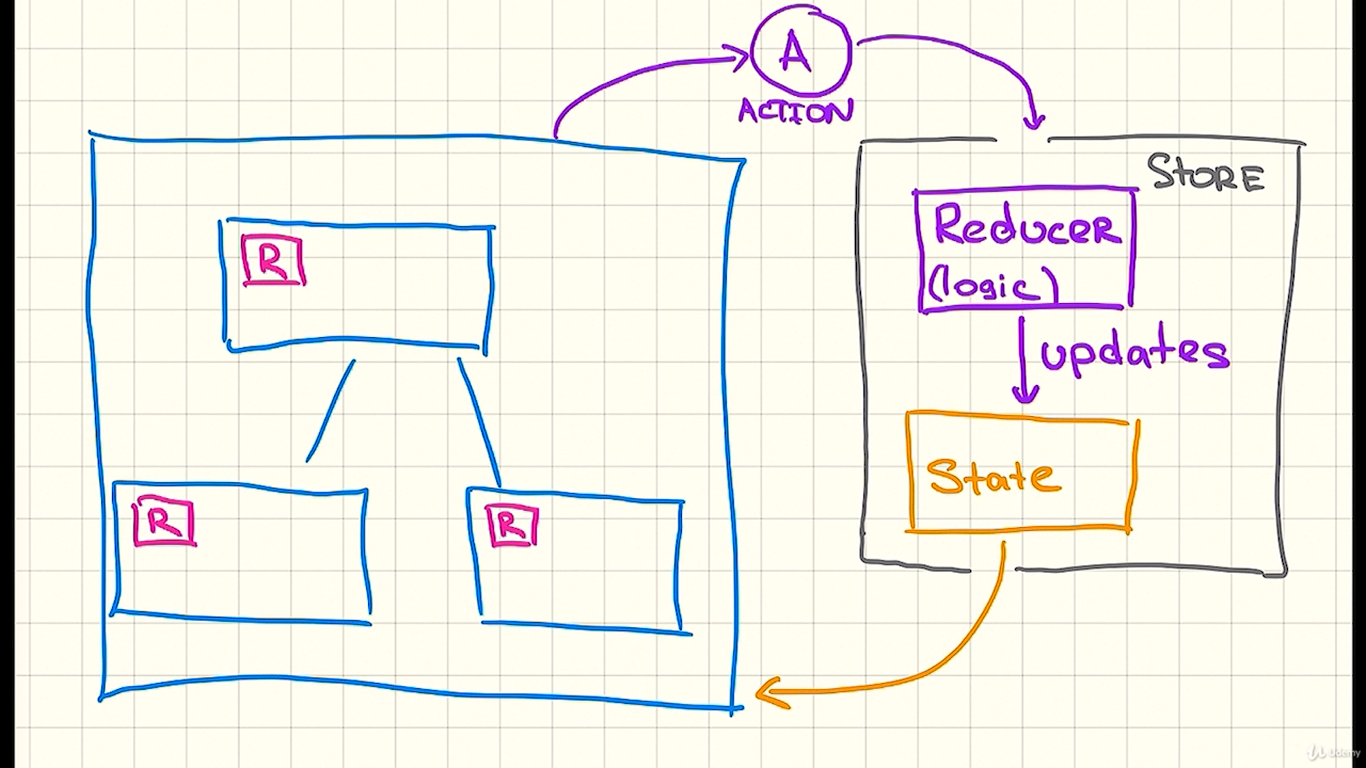 A
ACTION
STORE
Reducer
(logic)
updates
State
R
R
R
Udemy